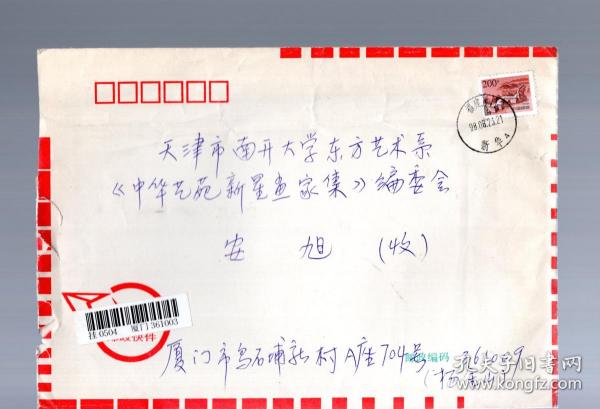 200
98.08.23.21
新华
天津市南开大学东方艺术系
《中华艺苑新星画家集》编委会
安 旭 (收)
挂0504 厦门361003
邮政快件
厦门市乌石埔新村A座704号
邮政编码
孔夫子旧书网
www.kongfz.com